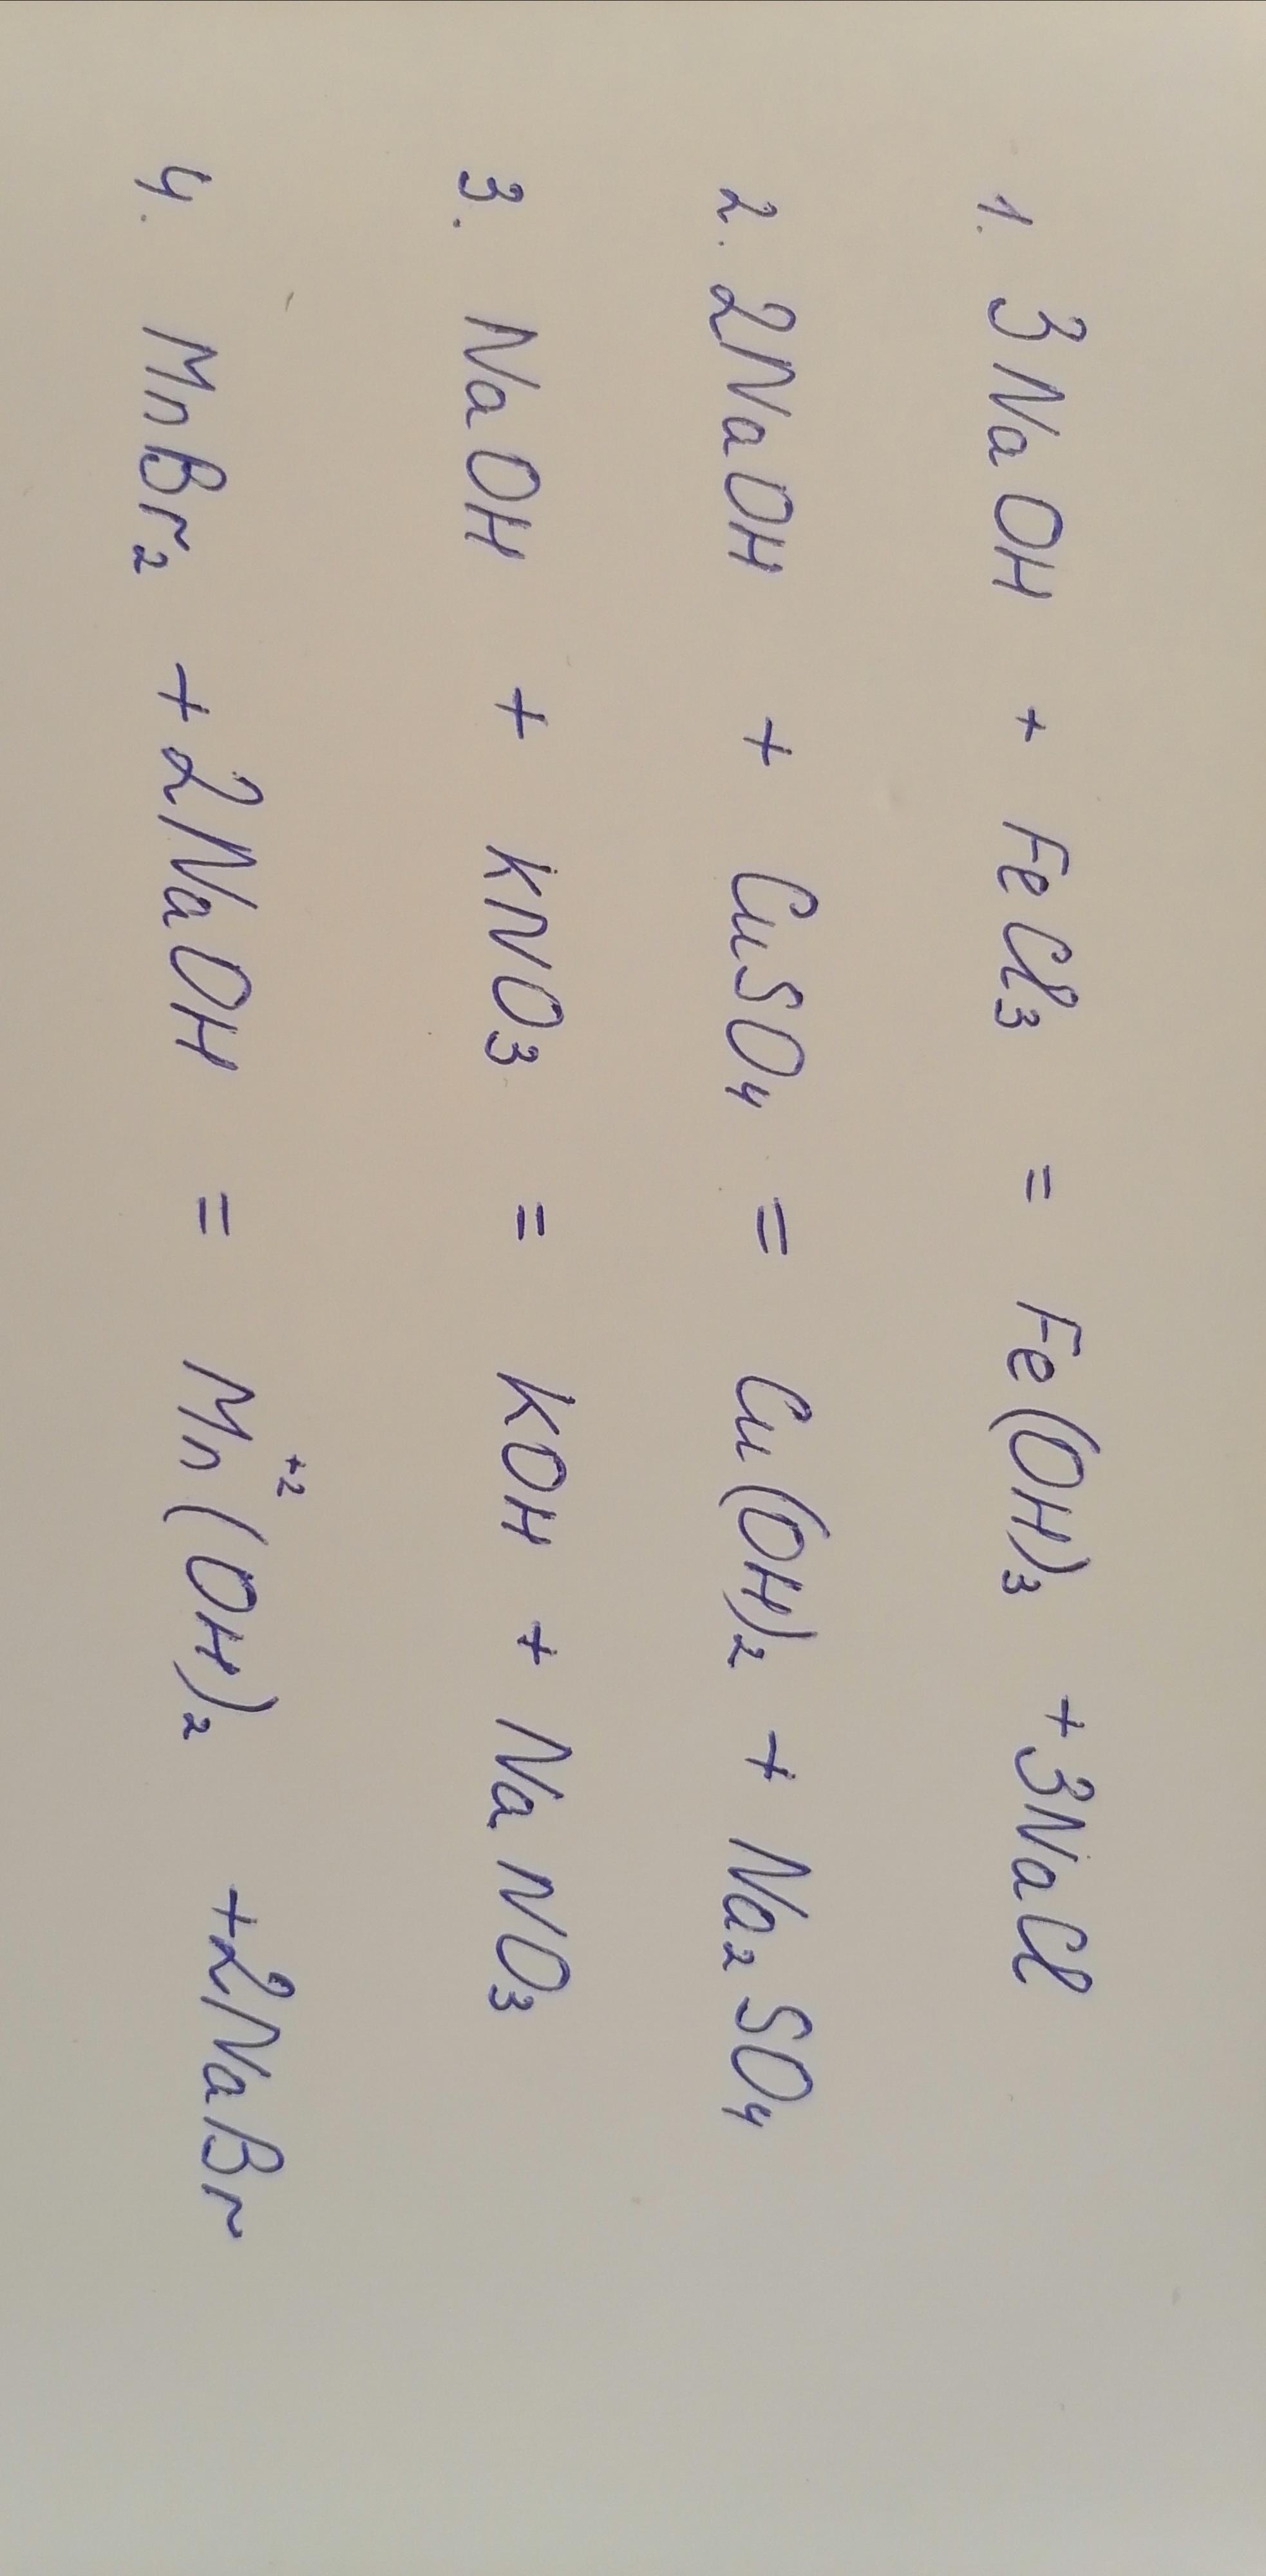 1. 3NaOH + FeCl₃ = Fe(OH)₃ + 3NaCl
2. 2NaOH + CuSO₄ = Cu(OH)₂ + Na₂SO₄
3. NaOH + KNO₃ = KOH + NaNO₃
4. MnBr₂ + 2NaOH = Mn⁺²(OH)₂ + 2NaBr